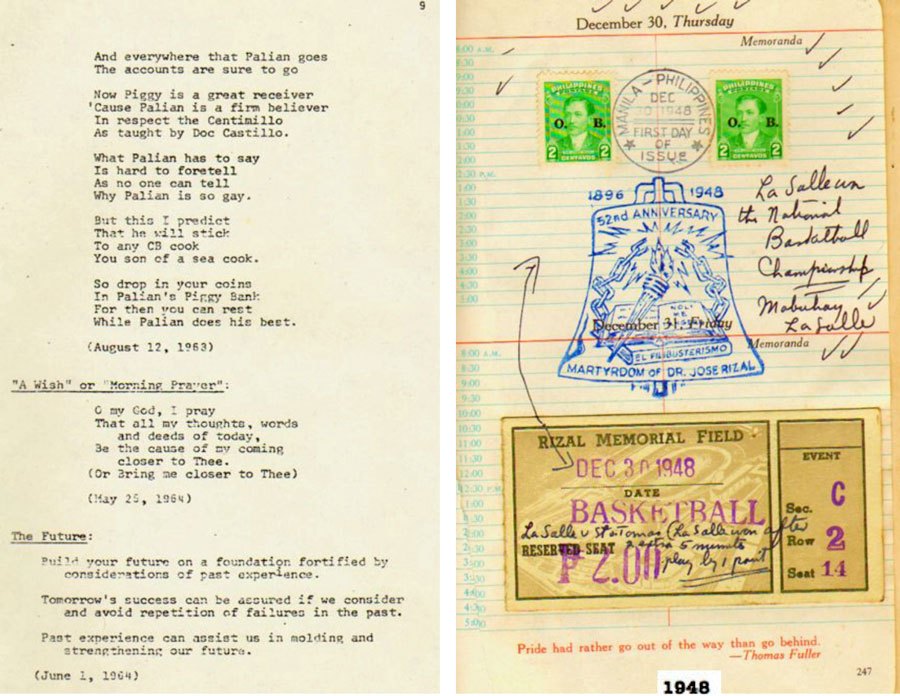 9
And everywhere that Palian goes
The accounts are sure to go
Now Piggy is a great receiver
'Cause Palian is a firm believer
In respect the Centimillo
As taught by Doc Castillo.
What Palian has to say
Is hard to foretell
As no one can tell
Why Palian is so gay.
But this I predict
That he will stick
To any CB cook
You son of a sea cook.
So drop in your coins
In Palian's Piggy Bank
For then you can rest
While Palian does his best.
(August 12, 1963)
"A Wish" or "Morning Prayer":
O my God, I pray
That all my thoughts, words
and deeds of today,
Be the cause of my coming
closer to Thee.
(Or Bring me closer to Thee)
(May 25, 1964)
The Future:
Build your future on a foundation fortified by
considerations of past experience.
Tomorrow's success can be assured if we consider
and avoid repetition of failures in the past.
Past experience can assist us in molding and
strengthening our future.
(June 1, 1964)
December 30, Thursday
Memoranda
8:00 A.M.
8:30
9:00
9:30
PHILIPPINES
O. B.
2 CENTAVOS 2
MANILA - PHILIPPINES
DEC
30 1948
FIRST DAY
OF
ISSUE
PHILIPPINES
O. B.
2 CENTAVOS 2
1:00
1:30
2:00
2:30
3:00
3:30
4:00
4:30
5:00
La Salle won
the National
Basketball
Championship
Mabuhay
La Salle
1896 1948
52nd ANNIVERSARY
NOLI
ME
EL FILIBUSTERISMO
MARTYRDOM OF DR. JOSE RIZAL
December 31, Friday
Memoranda
8:00 A.M.
8:30
9:00
9:30
10:00
10:30
11:00
11:30
12:00
12:30 P.M.
1:00
1:30
2:00
2:30
3:00
3:30
4:00
4:30
5:00
RIZAL MEMORIAL FIELD
DEC 30 1948
DATE
BASKETBALL
La Salle v Sto Tomas (La Salle won after
RESERVED SEAT 2 extra 5 minute
₱2.00 play by 1 point
EVENT
Sec. C
Row 2
Seat 14
Pride had rather go out of the way than go behind.
—Thomas Fuller
247
1948